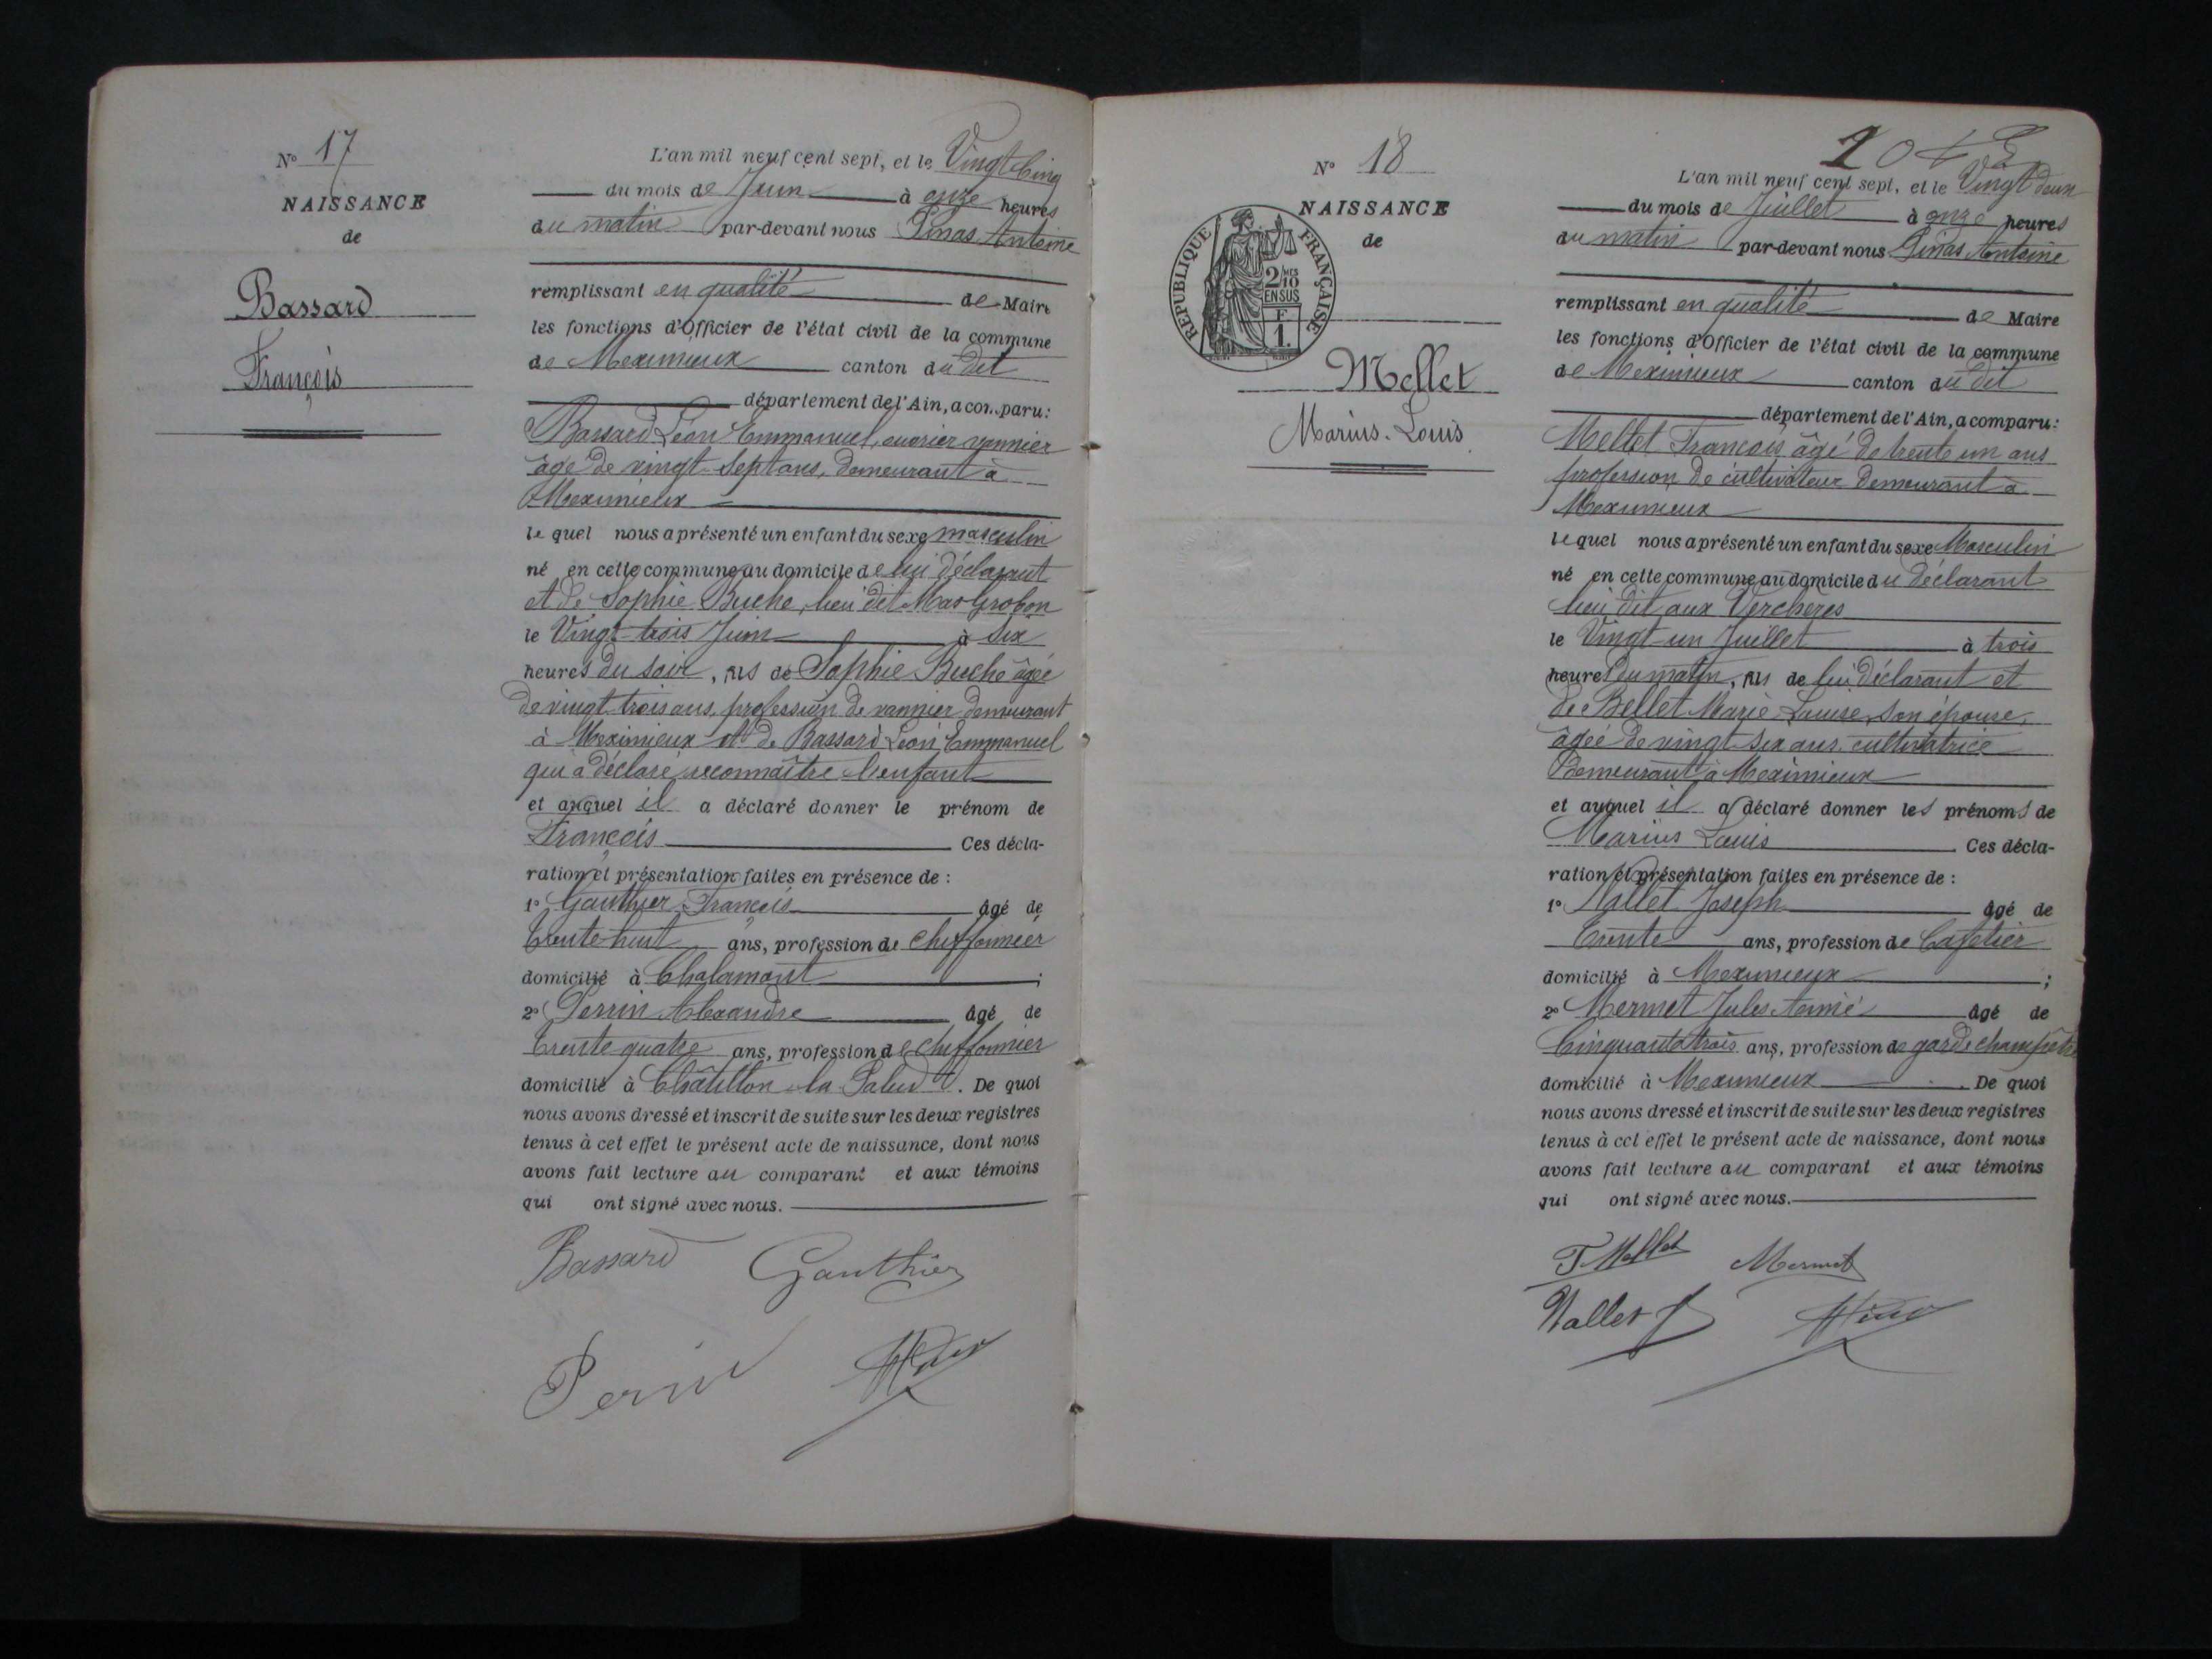 N° 17
NAISSANCE
de
Bassard
François
L'an mil neuf cent sept, et le Vingt Cinq
du mois de Juin à onze heures
du matin par-devant nous Pinas Antoine
remplissant en qualité de Maire
les fonctions d'Officier de l'état civil de la commune
de Meximieux canton du dit
département de l'Ain, a comparu:
Bassard Léon Emmanuel, ouvrier vannier
âgé de vingt-sept ans, demeurant à
Meximieux
lequel nous a présenté un enfant du sexe masculin
né en cette commune au domicile de lui déclarant
et de Sophie Buche, lieu dit Mas Grobon
le Vingt-trois Juin à six
heures du soir, fils de Sophie Buche âgée
de vingt trois ans, profession de vannier demeurant
à Meximieux et de Bassard Léon Emmanuel
qui a déclaré reconnaître l'enfant
et auquel il a déclaré donner le prénom de
François Ces décla-
ration et présentation faites en présence de :
1° Gauthier François âgé de
trente-huit ans, profession de chiffonnier
domicilié à Chalamont ;
2° Perrin Alexandre âgé de
trente quatre ans, profession de chiffonnier
domicilié à Châtillon la Palud. De quoi
nous avons dressé et inscrit de suite sur les deux registres
tenus à cet effet le présent acte de naissance, dont nous
avons fait lecture au comparant et aux témoins
qui ont signé avec nous.
Bassard Gauthier
Perrin
N° 18
NAISSANCE
de
REPUBLIQUE FRANÇAISE
2/10 MES
EN SUS
F
1.
Mellet
Marius-Louis
L'an mil neuf cent sept, et le Vingt deux
du mois de Juillet à onze heures
du matin par-devant nous Pinas Antoine
remplissant en qualité de Maire
les fonctions d'Officier de l'état civil de la commune
de Meximieux canton du dit
département de l'Ain, a comparu:
Mellet François âgé de trente un ans
profession de cultivateur demeurant à
Meximieux
lequel nous a présenté un enfant du sexe Masculin
né en cette commune au domicile du déclarant
lieu dit aux Verchères
le Vingt-un Juillet à trois
heures du matin, fils de lui déclarant et
de Bellet Marie Louise son épouse,
âgée de vingt six ans cultivatrice
demeurant à Meximieux
et auquel il a déclaré donner les prénoms de
Marius Louis Ces décla-
ration et présentation faites en présence de :
1° Nallet Joseph âgé de
trente ans, profession de Cafetier
domicilié à Meximieux ;
2° Mermet Jules Aimé âgé de
Cinquante trois ans, profession de garde champêtre
domicilié à Meximieux. De quoi
nous avons dressé et inscrit de suite sur les deux registres
tenus à cet effet le présent acte de naissance, dont nous
avons fait lecture au comparant et aux témoins
qui ont signé avec nous.
F Mellet Mermet
Nallet J